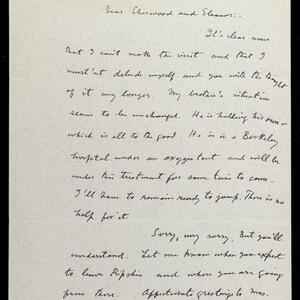 Dear Sherwood and Eleanor:-
It's clear now
that I can't make the visit and that I
must'nt delude myself and you with the thought
of it any longer. My brother's situation
seems to be unchanged. He is holding his own -
which is all to the good. He is in a Berkeley
hospital under an oxygen tent and will be
under this treatment for some time to come.
I'll have to remain ready to jump. There is no
help for it.
Sorry, very sorry. But you'll
understand. Let me know when you expect
to leave Ripshin and where you are going
from there. Affectionate greetings to Mrs.